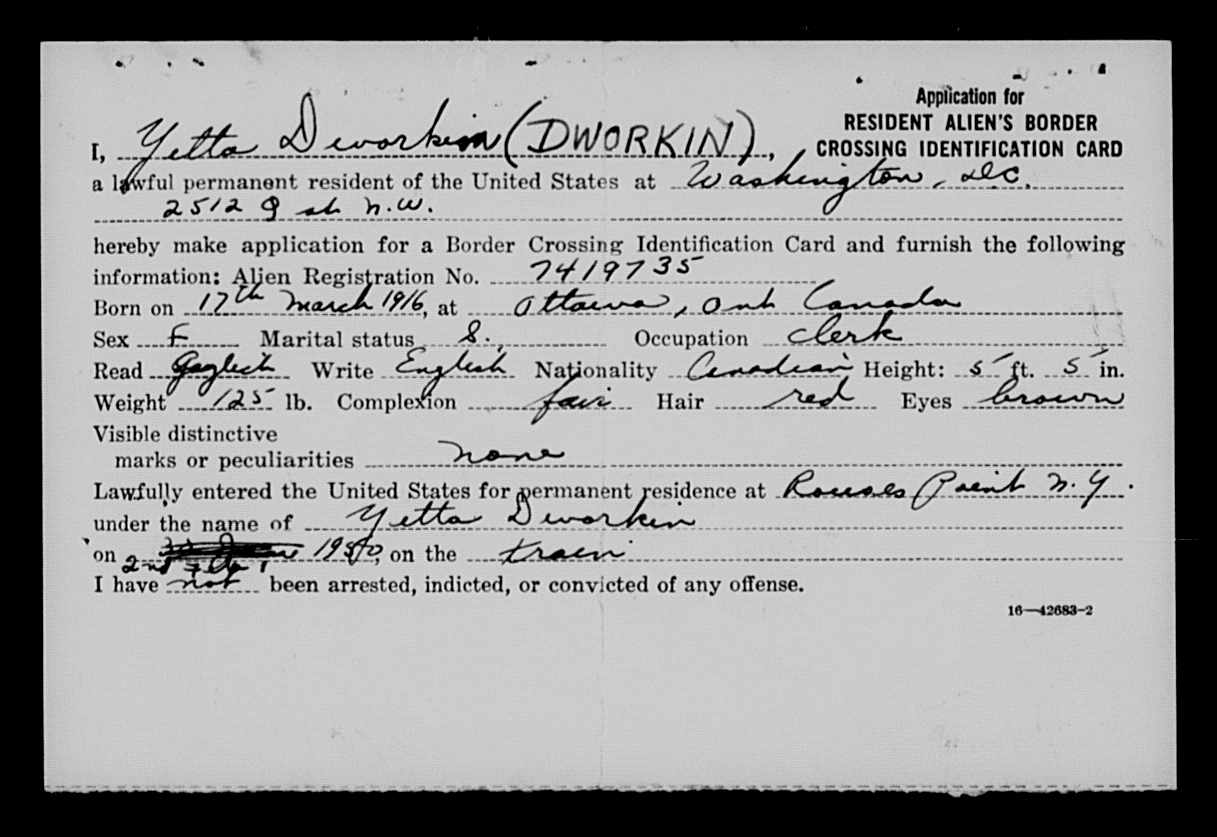 Application for
RESIDENT ALIEN'S BORDER
CROSSING IDENTIFICATION CARD
I, Yetta Dworkin (DWORKIN),
a lawful permanent resident of the United States at Washington, D.C.
2512 Q st. N.W.
hereby make application for a Border Crossing Identification Card and furnish the following
information: Alien Registration No. 7419735
Born on 17th March 1916, at Ottawa, Ont Canada
Sex F Marital status S. Occupation clerk
Read English Write English Nationality Canadian Height: 5 ft. 5 in.
Weight 125 lb. Complexion fair Hair red Eyes brown
Visible distinctive
marks or peculiarities none
Lawfully entered the United States for permanent residence at Rouses Point N.Y.
under the name of Yetta Dworkin
on 2nd 1950, on the train
I have not been arrested, indicted, or convicted of any offense.
16—42683-2